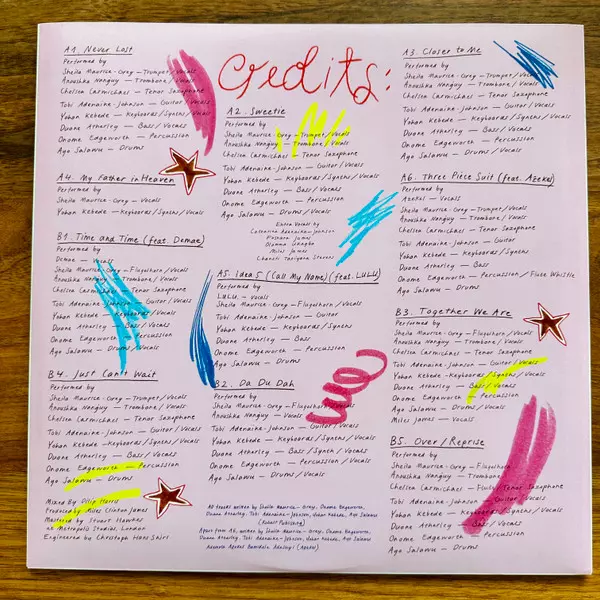 Credits:
A1. Never Lost
Performed by
Sheila Maurice-Grey – Trumpet/Vocals
Anoushka Nanguy – Trombone/Vocals
Chelsea Carmichael – Tenor Saxophone
Tobi Adenaike-Johnson – Guitar/Vocals
Yohan Kebede – Keyboards/Synths/Vocals
Duane Atherley – Bass/Vocals
Onome Edgeworth – Percussion
Ayo Salawu – Drums
A4. My Father in Heaven
Performed by
Sheila Maurice-Grey – Vocals
Yohan Kebede – Keyboards/Synths/Vocals
B1. Time and Time (feat. Demae)
Performed by
Demae – Vocals
Sheila Maurice-Grey – Flugelhorn/Vocals
Anoushka Nanguy – Trombone/Vocals
Chelsea Carmichael – Tenor Saxophone
Tobi Adenaike-Johnson – Guitar/Vocals
Yohan Kebede – Keyboards
Duane Atherley – Bass/Vocals
Onome Edgeworth – Percussion
Ayo Salawu – Drums
B4. Just Can't Wait
Performed by
Sheila Maurice-Grey – Trumpet/Vocals
Anoushka Nanguy – Trombone/Vocals
Chelsea Carmichael – Tenor Saxophone
Tobi Adenaike-Johnson – Guitar/Vocals
Yohan Kebede – Keyboards/Synths/Vocals
Duane Atherley – Bass/Vocals
Onome Edgeworth – Percussion
Ayo Salawu – Drums
Mixed By Dilip Harris
Produced by Miles Clinton James
Mastered by Stuart Hawkes
at Metropolis Studios, London
Engineered by Christoph Hans Skirl
A2. Sweetie
Performed by
Sheila Maurice-Grey – Trumpet/Vocals
Anoushka Nanguy – Trombone/Vocals
Chelsea Carmichael – Tenor Saxophone
Tobi Adenaike-Johnson – Guitar/Vocals
Yohan Kebede – Keyboards/Synths/Vocals
Duane Atherley – Bass/Vocals
Onome Edgeworth – Percussion
Ayo Salawu – Drums/Vocals
Extra Vocals by
Catherine Adenaike-Johnson
James
Miles James
Chanati Stevens
A5. Idea 5 (Call My Name) (feat. LULU)
Performed by
LULU. – Vocals
Sheila Maurice-Grey – Flugelhorn/Vocals
Tobi Adenaike-Johnson – Guitar
Yohan Kebede – Keyboards/Synths
Duane Atherley – Bass
Onome Edgeworth – Percussion
Ayo Salawu – Drums
B2. Da Du Dah
Performed by
Sheila Maurice-Grey – Flugelhorn/Vocals
Anoushka Nanguy – Vocals
Tobi Adenaike-Johnson – Guitar/Vocals
Yohan Kebede – Keyboards/Synths/Vocals
Duane Atherley – Bass/Vocals
Onome Edgeworth – Percussion
Ayo Salawu – Drums/Vocals
All tracks written by Sheila Maurice-Grey, Onome Edgeworth,
Duane Atherley, Tobi Adenaike-Johnson, Yohan Kebede, Ayo Salawu
(Kobalt Publishing)
Apart from A6, written by Sheila Maurice-Grey, Onome Edgeworth,
Duane Atherley, Tobi Adenaike-Johnson, Yohan Kebede, Ayo Salawu
Azekel Adesuyi
A3. Closer to Me
Performed by
Sheila Maurice-Grey – Trumpet/Vocals
Anoushka Nanguy – Trombone/Vocals
Chelsea Carmichael – Tenor Saxophone
Tobi Adenaike-Johnson – Guitar/Vocals
Yohan Kebede – Keyboards/Synths/Vocals
Duane Atherley – Bass/Vocals
Onome Edgeworth – Percussion
Ayo Salawu – Drums
A6. Three Piece Suit (feat. Azekel)
Performed by
Azekel – Vocals
Sheila Maurice-Grey – Trumpet/Vocals
Anoushka Nanguy – Trombone/Vocals
Tobi Adenaike-Johnson – Guitar/Vocals
Yohan Kebede – Keyboards/Synths/Vocals
Duane Atherley – Bass
Onome Edgeworth – Percussion/Flute Whistle
Ayo Salawu – Drums
B3. Together We Are
Performed by
Sheila Maurice-Grey – Flugelhorn/Vocals
Anoushka Nanguy – Trombone/Vocals
Chelsea Carmichael – Tenor Saxophone
Tobi Adenaike-Johnson – Guitar/Vocals
Yohan Kebede – Keyboards/Synths/Vocals
Duane Atherley – Bass/Vocals
Onome Edgeworth – Percussion
Ayo Salawu – Drums/Vocals
Miles James – Vocals
B5. Over/Reprise
Performed by
Sheila Maurice-Grey – Flugelhorn
Anoushka Nanguy – Trombone/Vocals
Chelsea Carmichael – Tenor Saxophone
Tobi Adenaike-Johnson – Guitar/Vocals
Yohan Kebede – Keyboards/Synths/Vocals
Duane Atherley – Bass/Vocals
Onome Edgeworth – Percussion
Ayo Salawu – Drums